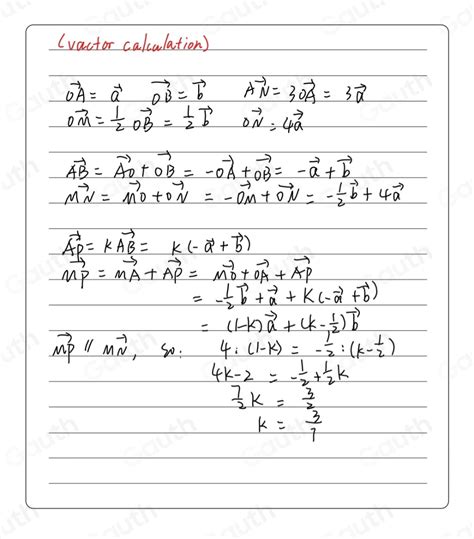 (vactor calculation)
→OA = →a →OB = →b →AN = 3→OA = 3→a
→OM = 1/2 →OB = 1/2 →b →ON = 4→a
→AB = →AO + →OB = -→OA + →OB = -→a + →b
→MN = →MO + →ON = -→OM + →ON = -1/2 →b + 4→a
→AP = k→AB = k(-→a + →b)
→MP = →MA + →AP = →MO + →OA + →AP
= -1/2 →b + →a + k(-→a + →b)
= (1-k)→a + (k-1/2)→b
→MP // →MN, so: 4:(1-k) = -1/2:(k-1/2)
4k-2 = -1/2 + 1/2 k
7/2 k = 3/2
k = 3/7